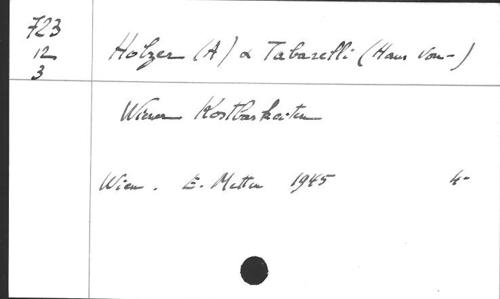 723
12
3
Holzer (A) & Tabarelli (Hans von-)
Wiener Kostbarkeiten
Wien. E. Metten 1945 4-